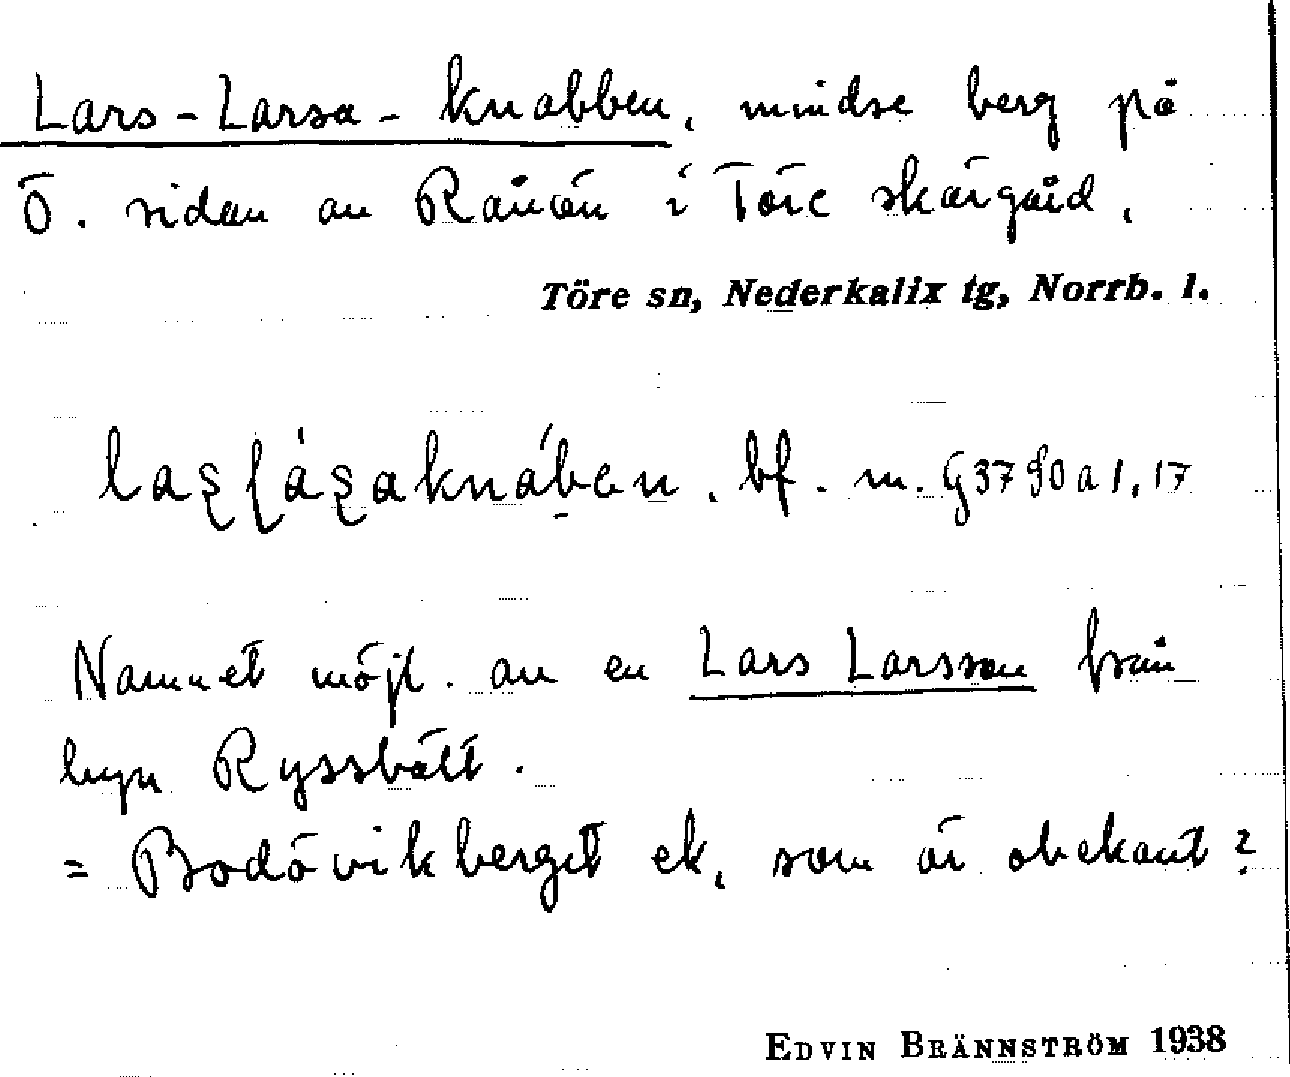 Lars-Larsa-knabben, mindre berg på
Ö. sidan av Rånön i Töre skärgård.
Töre sn, Nederkalix tg, Norrb. l.
bf. m. G3790a1,17
Namnet möjl. av en Lars Larsson från
byn Ryssbält.
= Bodövikberget ek, som är obekant?
EDVIN BRÄNNSTRÖM 1938